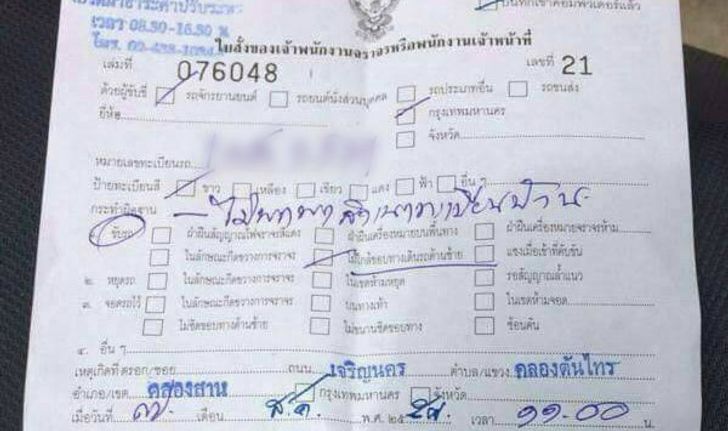 บันทึกเข้าคอมพิวเตอร์แล้ว
เวลา 08.30-16.30 น
โทร. 02-438-
ใบสั่งของเจ้าพนักงานจราจรหรือพนักงานเจ้าหน้าที่
เล่มที่ 076048 เลขที่ 21
ด้วยผู้ขับขี่ รถจักรยานยนต์ รถยนต์นั่งส่วนบุคคล รถประเภทอื่น รถขนส่ง
ยี่ห้อ กรุงเทพมหานคร
จังหวัด
หมายเลขทะเบียนรถ
ป้ายทะเบียนสี ขาว เหลือง เขียว แดง ฟ้า อื่น ๆ
กระทำผิดฐาน - ไม่พกพาสำเนาทะเบียนบ้าน
ขับรถ ฝ่าฝืนสัญญาณไฟจราจรสีแดง ฝ่าฝืนเครื่องหมายบนพื้นทาง ฝ่าฝืนเครื่องหมายจราจรห้าม
ในลักษณะกีดขวางการจราจร ไม่ใกล้ขอบทางเดินรถด้านซ้าย แซงเมื่อเข้าที่คับขัน
๒. หยุดรถ ในลักษณะกีดขวางการจราจร ในเขตห้ามหยุด รอสัญญาณล้ำแนว
๓. จอดรถไว้ ในลักษณะกีดขวางการจราจร บนทางเท้า ในเขตห้ามจอด
ไม่ชิดขอบทางด้านซ้าย ไม่ขนานชิดขอบทาง ซ้อนคัน
๔. อื่น ๆ
เหตุเกิดที่ตรอก/ซอย ถนน เจริญนคร ตำบล/แขวง คลองต้นไทร
อำเภอ/เขต คลองสาน กรุงเทพมหานคร จังหวัด
เมื่อวันที่ ๗ เดือน ส.ค. พ.ศ. ๒๕ เวลา ๑๑.๐๐ น.